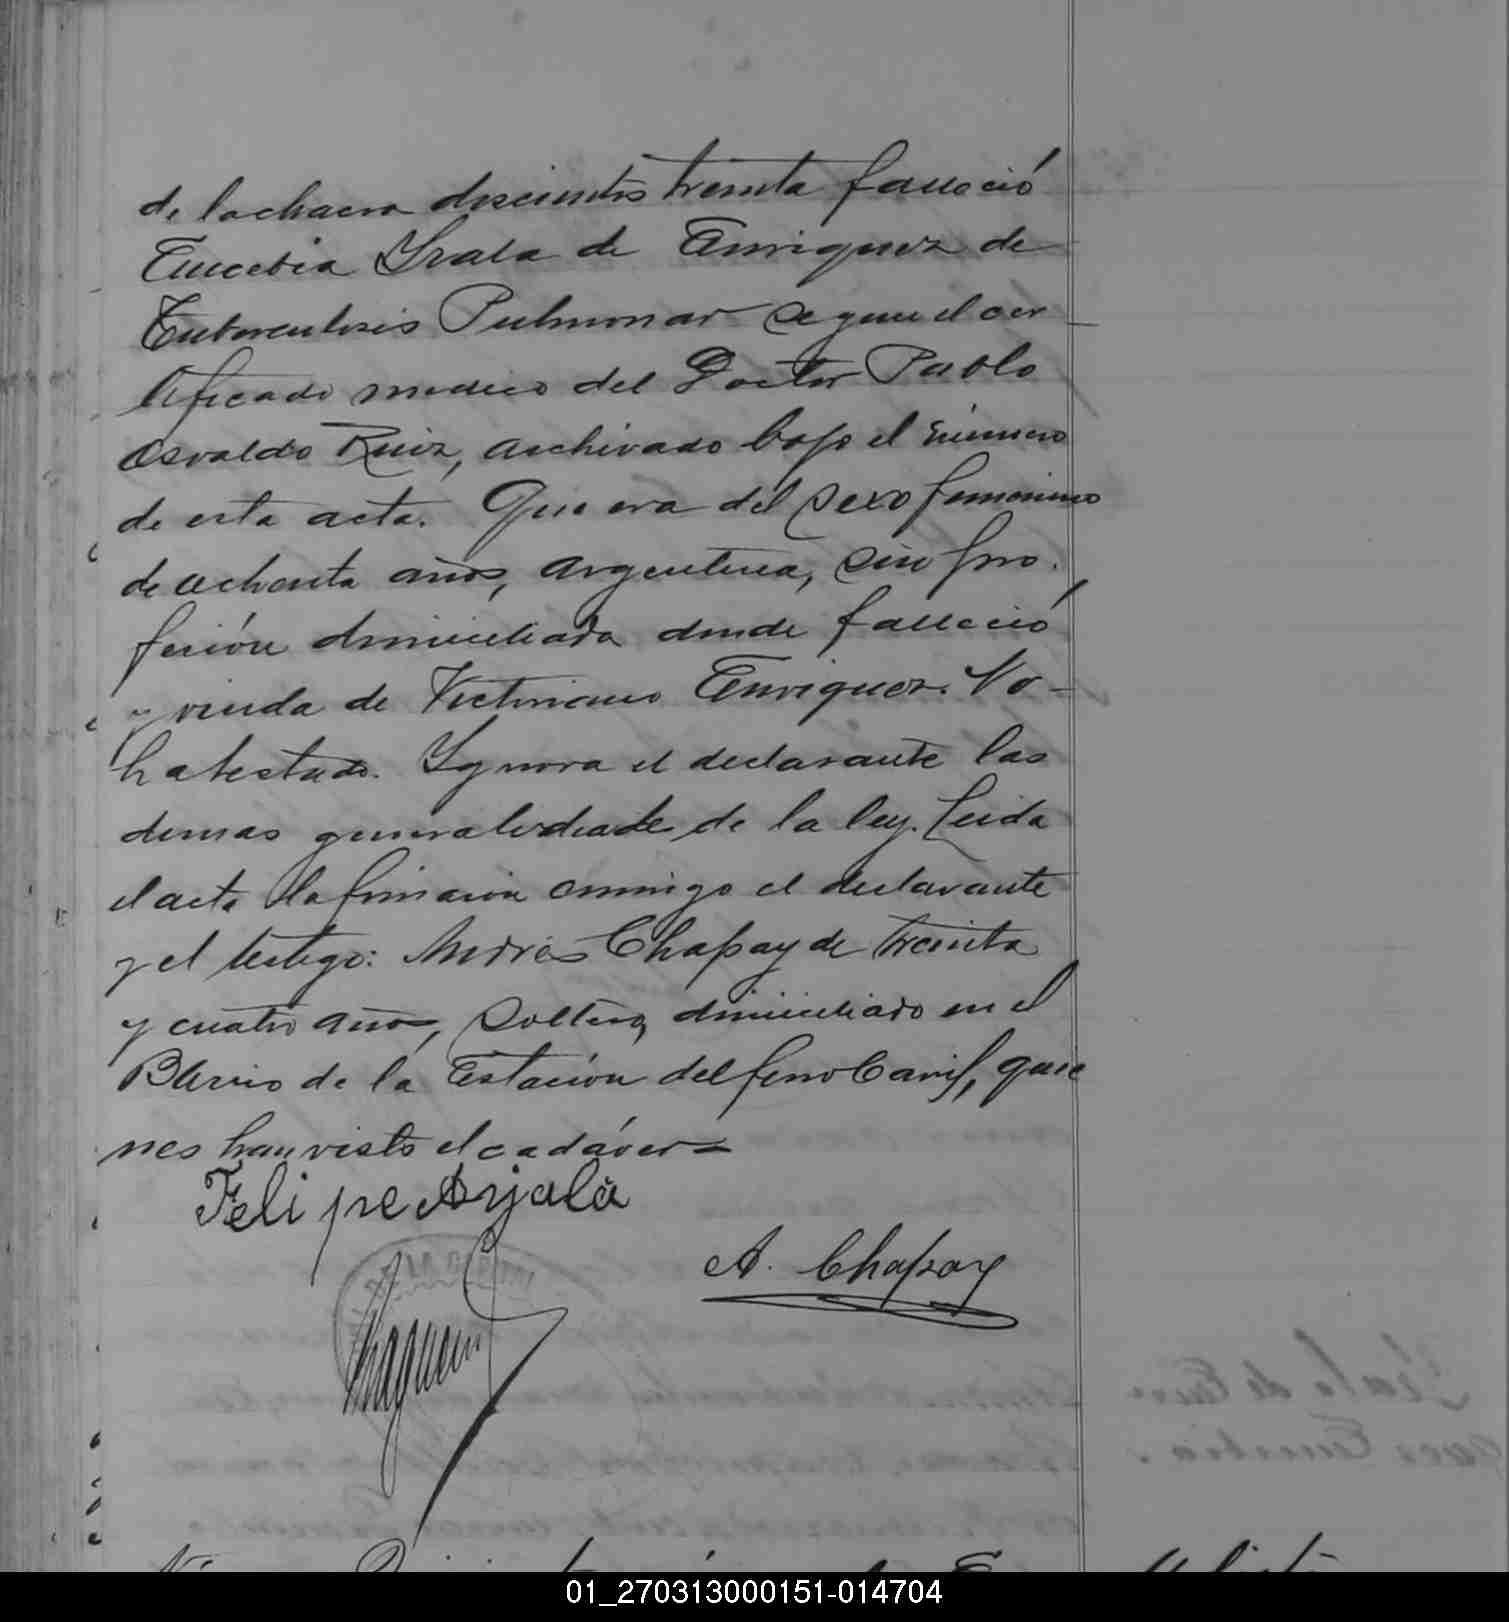 de la chacra doscientos treinta falleció
Eucebia Yrala de Enriquez de
Tuberculosis Pulmonar segun el cer
tificado medico del Doctor Pablo
Osvaldo Ruiz, archivado bajo el número
de esta acta. Que era del sexo femenino
de ochenta años, argentina, sin pro.
fesión domiciliada donde falleció
y viuda de Victoriano Enriquez. No
ha testado. Ygnora el declarante las
demas generalidades de la ley. Leida
el acta la firmaron conmigo el declarante
y el testigo: Andrés Chapay de treinta
y cuatro años, soltero, domiciliado en el
Barrio de la Estación del ferro Carril, quie
nes han visto el cadáver=
Felipe Ayala
A. Chapay
01_270313000151-014704